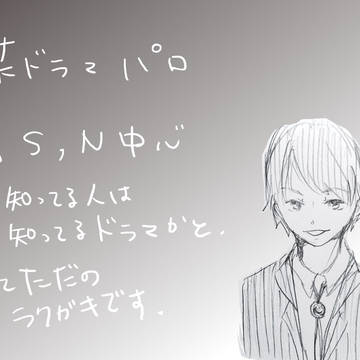 某ドラマ パロ
, S , N 中心
知ってる人は
知ってるドラマかと.
てただの
ラクガキです.